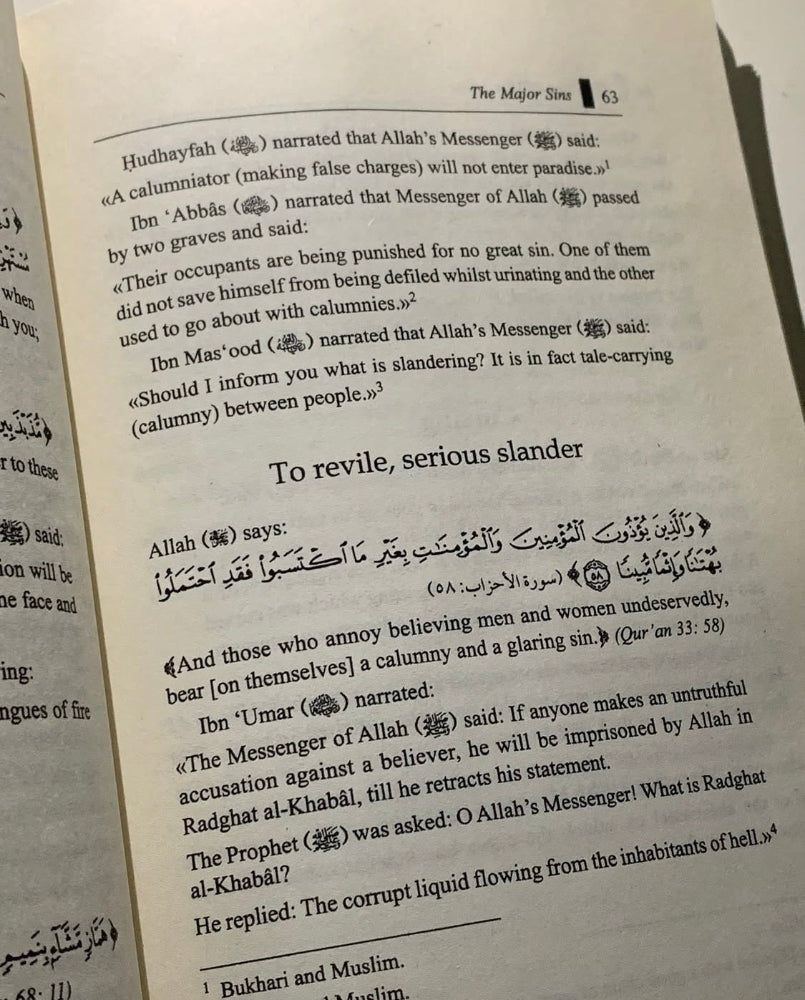 نَمِيمٍ
when
h you;
r to these
said:
ion will be
ne face and
ing:
ngues of fire
هَمَّازٍ مَّشَّآءٍۭ بِنَمِيمٍ
68: 11)
The Major Sins 63
Ḥudhayfah (رضي الله عنه) narrated that Allah's Messenger (ﷺ) said:
«A calumniator (making false charges) will not enter paradise.»¹
Ibn ‘Abbâs (رضي الله عنه) narrated that Messenger of Allah (ﷺ) passed
by two graves and said:
«Their occupants are being punished for no great sin. One of them
did not save himself from being defiled whilst urinating and the other
used to go about with calumnies.»²
Ibn Mas‘ood (رضي الله عنه) narrated that Allah's Messenger (ﷺ) said:
«Should I inform you what is slandering? It is in fact tale-carrying
(calumny) between people.»³
To revile, serious slander
Allah (ﷻ) says:
﴿وَٱلَّذِينَ يُؤْذُونَ ٱلْمُؤْمِنِينَ وَٱلْمُؤْمِنَٰتِ بِغَيْرِ مَا ٱكْتَسَبُوا۟ فَقَدِ ٱحْتَمَلُوا۟
بُهْتَٰنًا وَإِثْمًا مُّبِينًا ٥٨﴾ (سورة الأحزاب: ٥٨)
﴾And those who annoy believing men and women undeservedly,
bear [on themselves] a calumny and a glaring sin.﴿ (Qur'an 33: 58)
Ibn ‘Umar (رضي الله عنه) narrated:
«The Messenger of Allah (ﷺ) said: If anyone makes an untruthful
accusation against a believer, he will be imprisoned by Allah in
Radghat al-Khabâl, till he retracts his statement.
The Prophet (ﷺ) was asked: O Allah's Messenger! What is Radghat
al-Khabâl?
He replied: The corrupt liquid flowing from the inhabitants of hell.»⁴
¹ Bukhari and Muslim.
and Muslim.